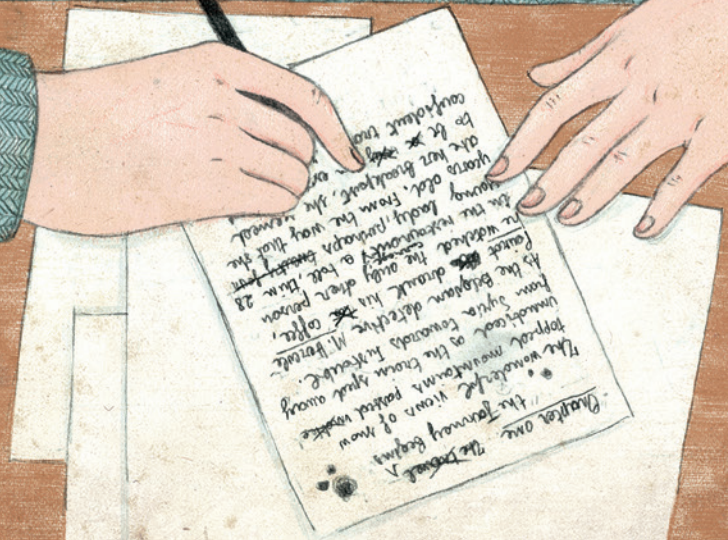 The travel
Chapter one "the Journey Begins
"The wonderful views of snow
topped mountains passed
unnoticed as the train sped away
from Syria towards
As the Belgian detective M. Hercule
Poirot drank his coffee,
he watched the only other person
in the restaurant, a tall, thin
young lady, perhaps 28
years old. From the way that she
ate her breakfast, she seemed
to be
confident